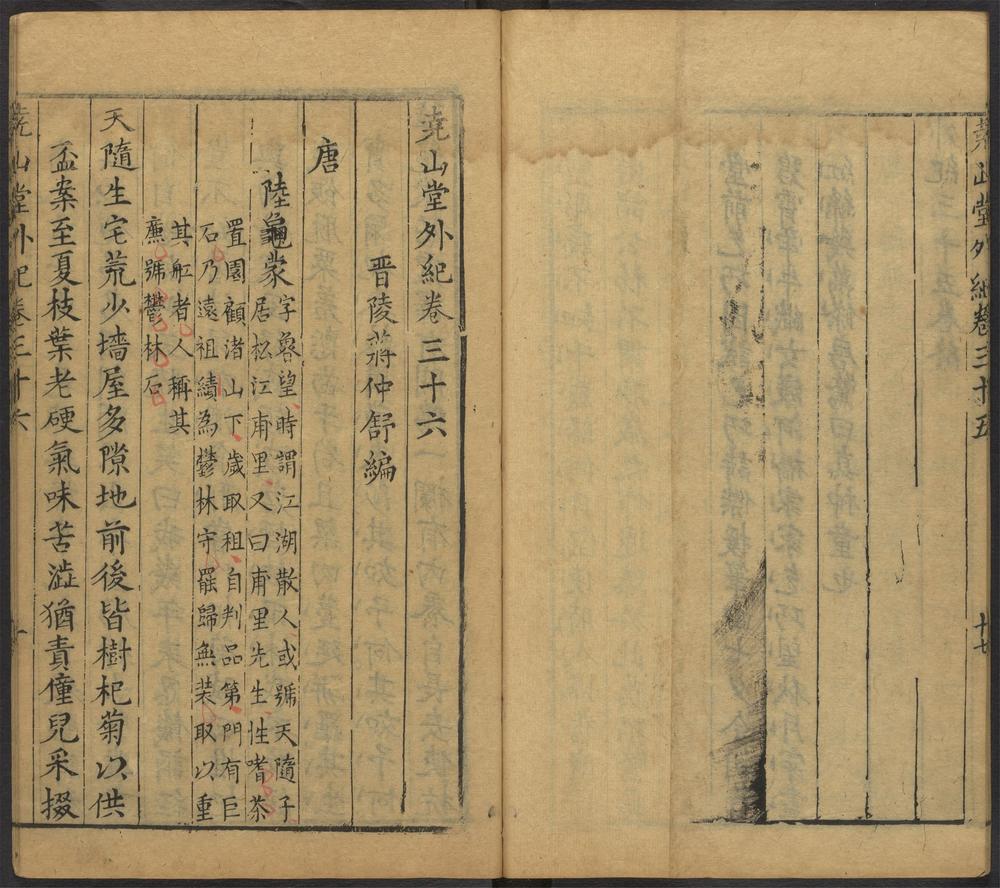 堯山堂外紀卷三十五
十七
堯山堂外紀卷三十六
晋陵蔣仲舒編
唐
陸龜蒙
字魯望時謂江湖散人或號天隨子
居松江甫里又曰甫里先生性嗜茶
置園顧渚山下歲取租自判品第門有巨
石乃遠祖績為鬱林守罷歸無装取以重
其舡者人稱其
㢘號鬱林石
天隨生宅荒少墻屋多隙地前後皆樹杞菊以供
盃案至夏枝葉老硬氣味苦澁猶責僮兒采掇
堯山堂外紀卷三十六